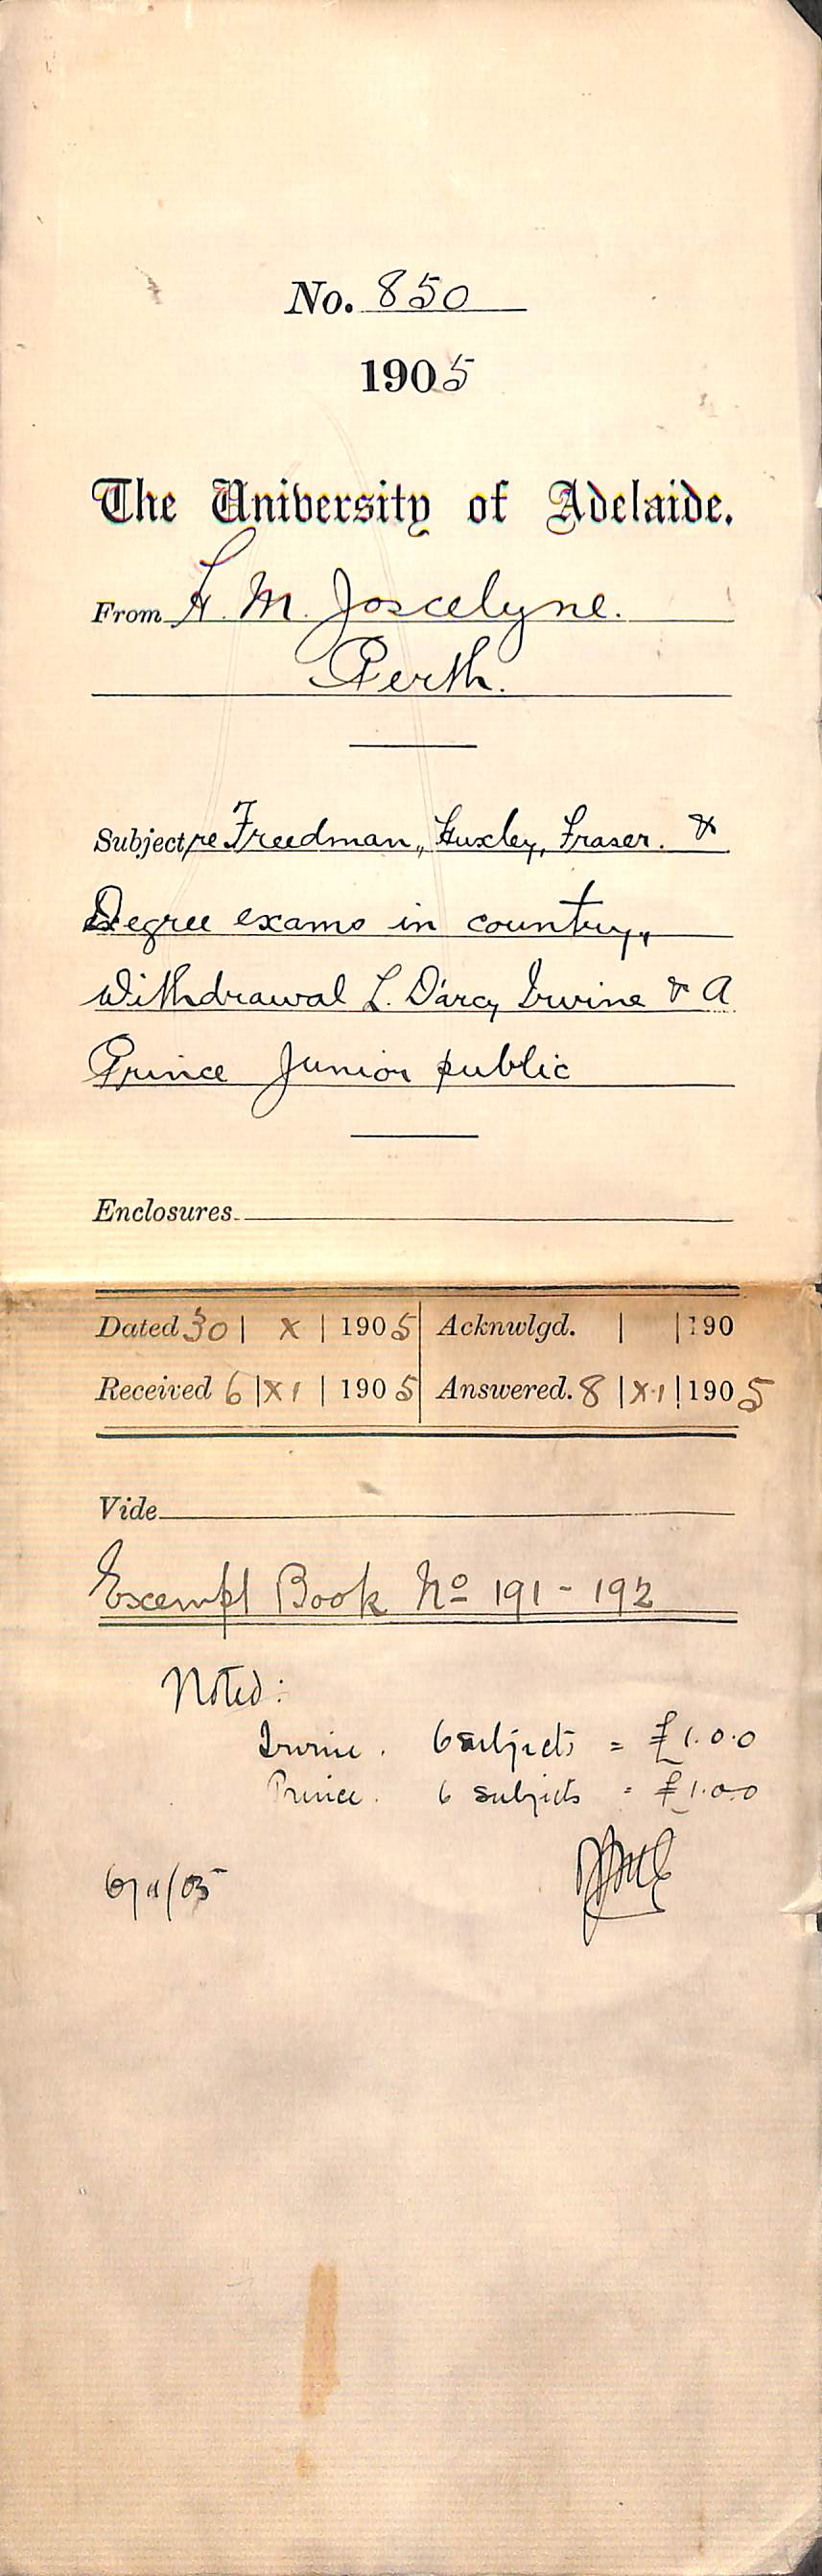 No. 850
1905
The University of Adelaide.
From H. M. Joscelyne.
Perth.
Subject, re Freedman, Huxley, Fraser. &
Degree exams in country,
Withdrawal L. D'arcy Irwine & A
Prince Junior public
Enclosures
Dated 30 | X | 1905 | Acknwlgd. | | 190
Received 6 | XI | 1905 | Answered. 8 | XI | 1905
Vide
Exempt Book No 191 - 192
Noted:
Irwine. 6 subjects = £1.0.0
Prince. 6 subjects = £1.0.0
6/11/05